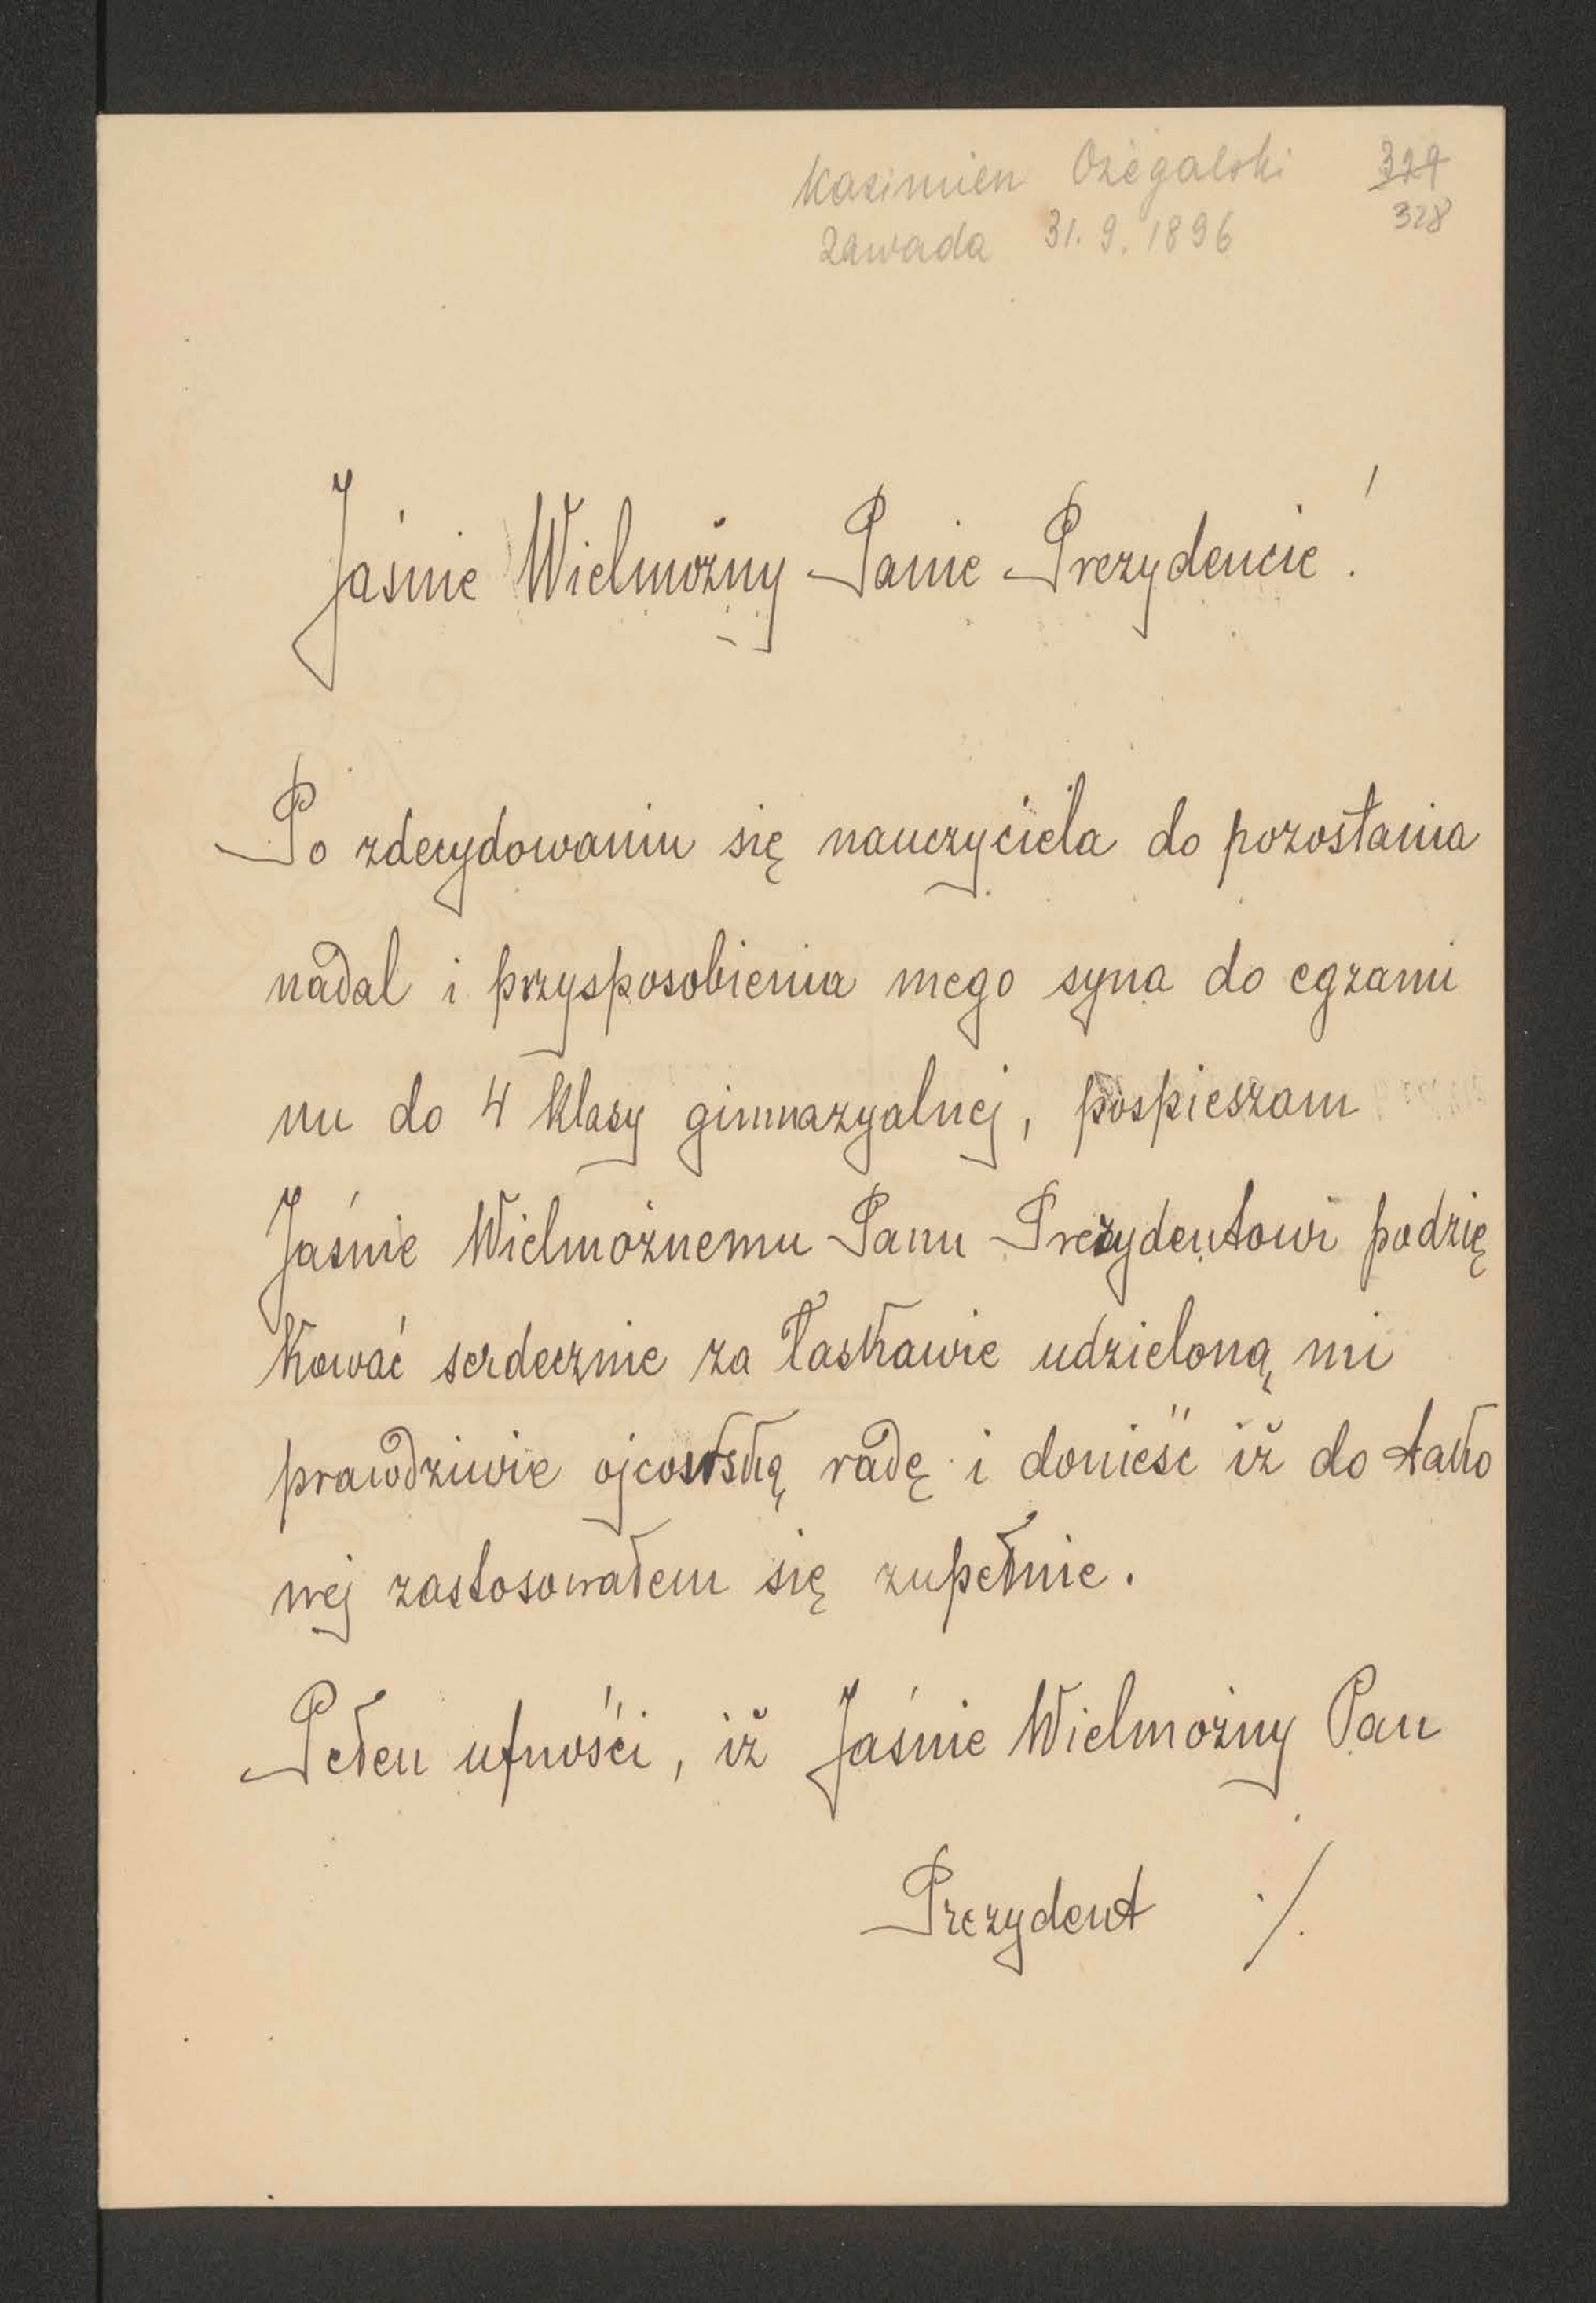 Kasimien Ożegalski 329
Zawada 31. 9. 1896 328
Jaśnie Wielmożny Panie Prezydencie!
Po zdecydowaniu się nauczyciela do pozostania
nadal i przysposobienia mego syna do egzami
nu do 4 klasy gimnazyalnej, pospieszam
Jaśnie Wielmożnemu Panu Prezydentowi podzię
kować serdecznie za łaskawie udzieloną mi
prawdziwie ojcowską radę i donieść iż do tako
wej zastosowałem się zupełnie.
Pełen ufności, iż Jaśnie Wielmożny Pan
Prezydent ./.